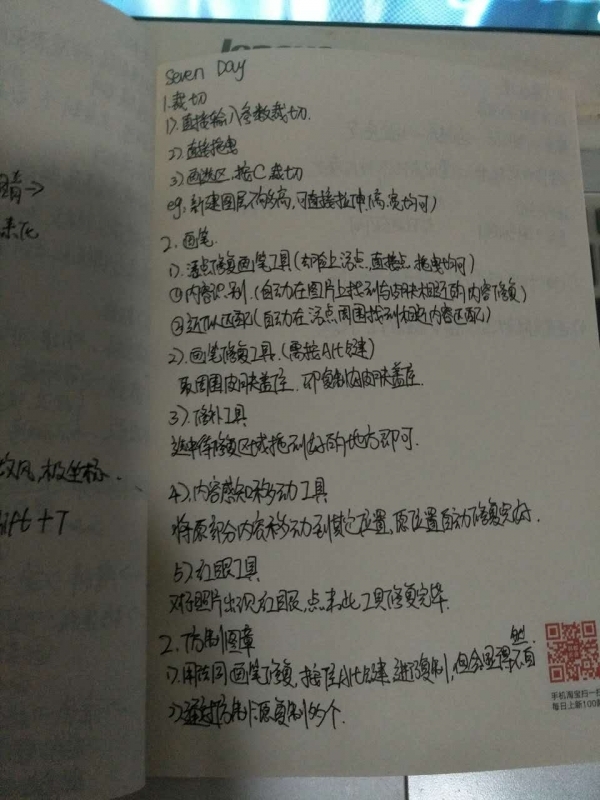 lenovo
Seven Day
1.裁切
1).直接输入参数裁切.
2).直接拖曳
3)画选区,按C裁切
eg,新建图层不够高,可直接拉伸(高,宽均可)
2.画笔.
1).污点修复画笔工具(去脸上污点,直接点,拖曳均可)
①内容识别.(自动在图片上找到与皮肤相近的内容修复)
②近似匹配(自动在污点周围找到相近内容匹配)
2).画笔修复工具.(需按Alt键)
取周围皮肤盖住.即复制的皮肤盖住.
3).修补工具
选中待修复区域拖到好的地方即可.
4).内容感知移动工具
将原部分内容移动到其它位置,原位置自动修复完好.
5).红眼工具
对待照片出现红眼,点击此工具修复完毕.
2.仿制图章
1).用法同画笔修复,按住Alt键进行复制,但会显得不自然.
2)通过仿制原复制的个.
睛→
来化
风,极坐标.
ift+T
手机淘宝扫一扫
每日上新100